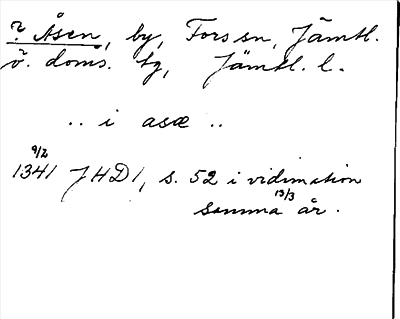 ? Åsen, by, Fors sn, Jämtl.
ö. doms. tg, Jämtl. l.
.. i asæ ..
9/2 1341 JHD 1, s. 52 i vidimation
13/3 samma år.